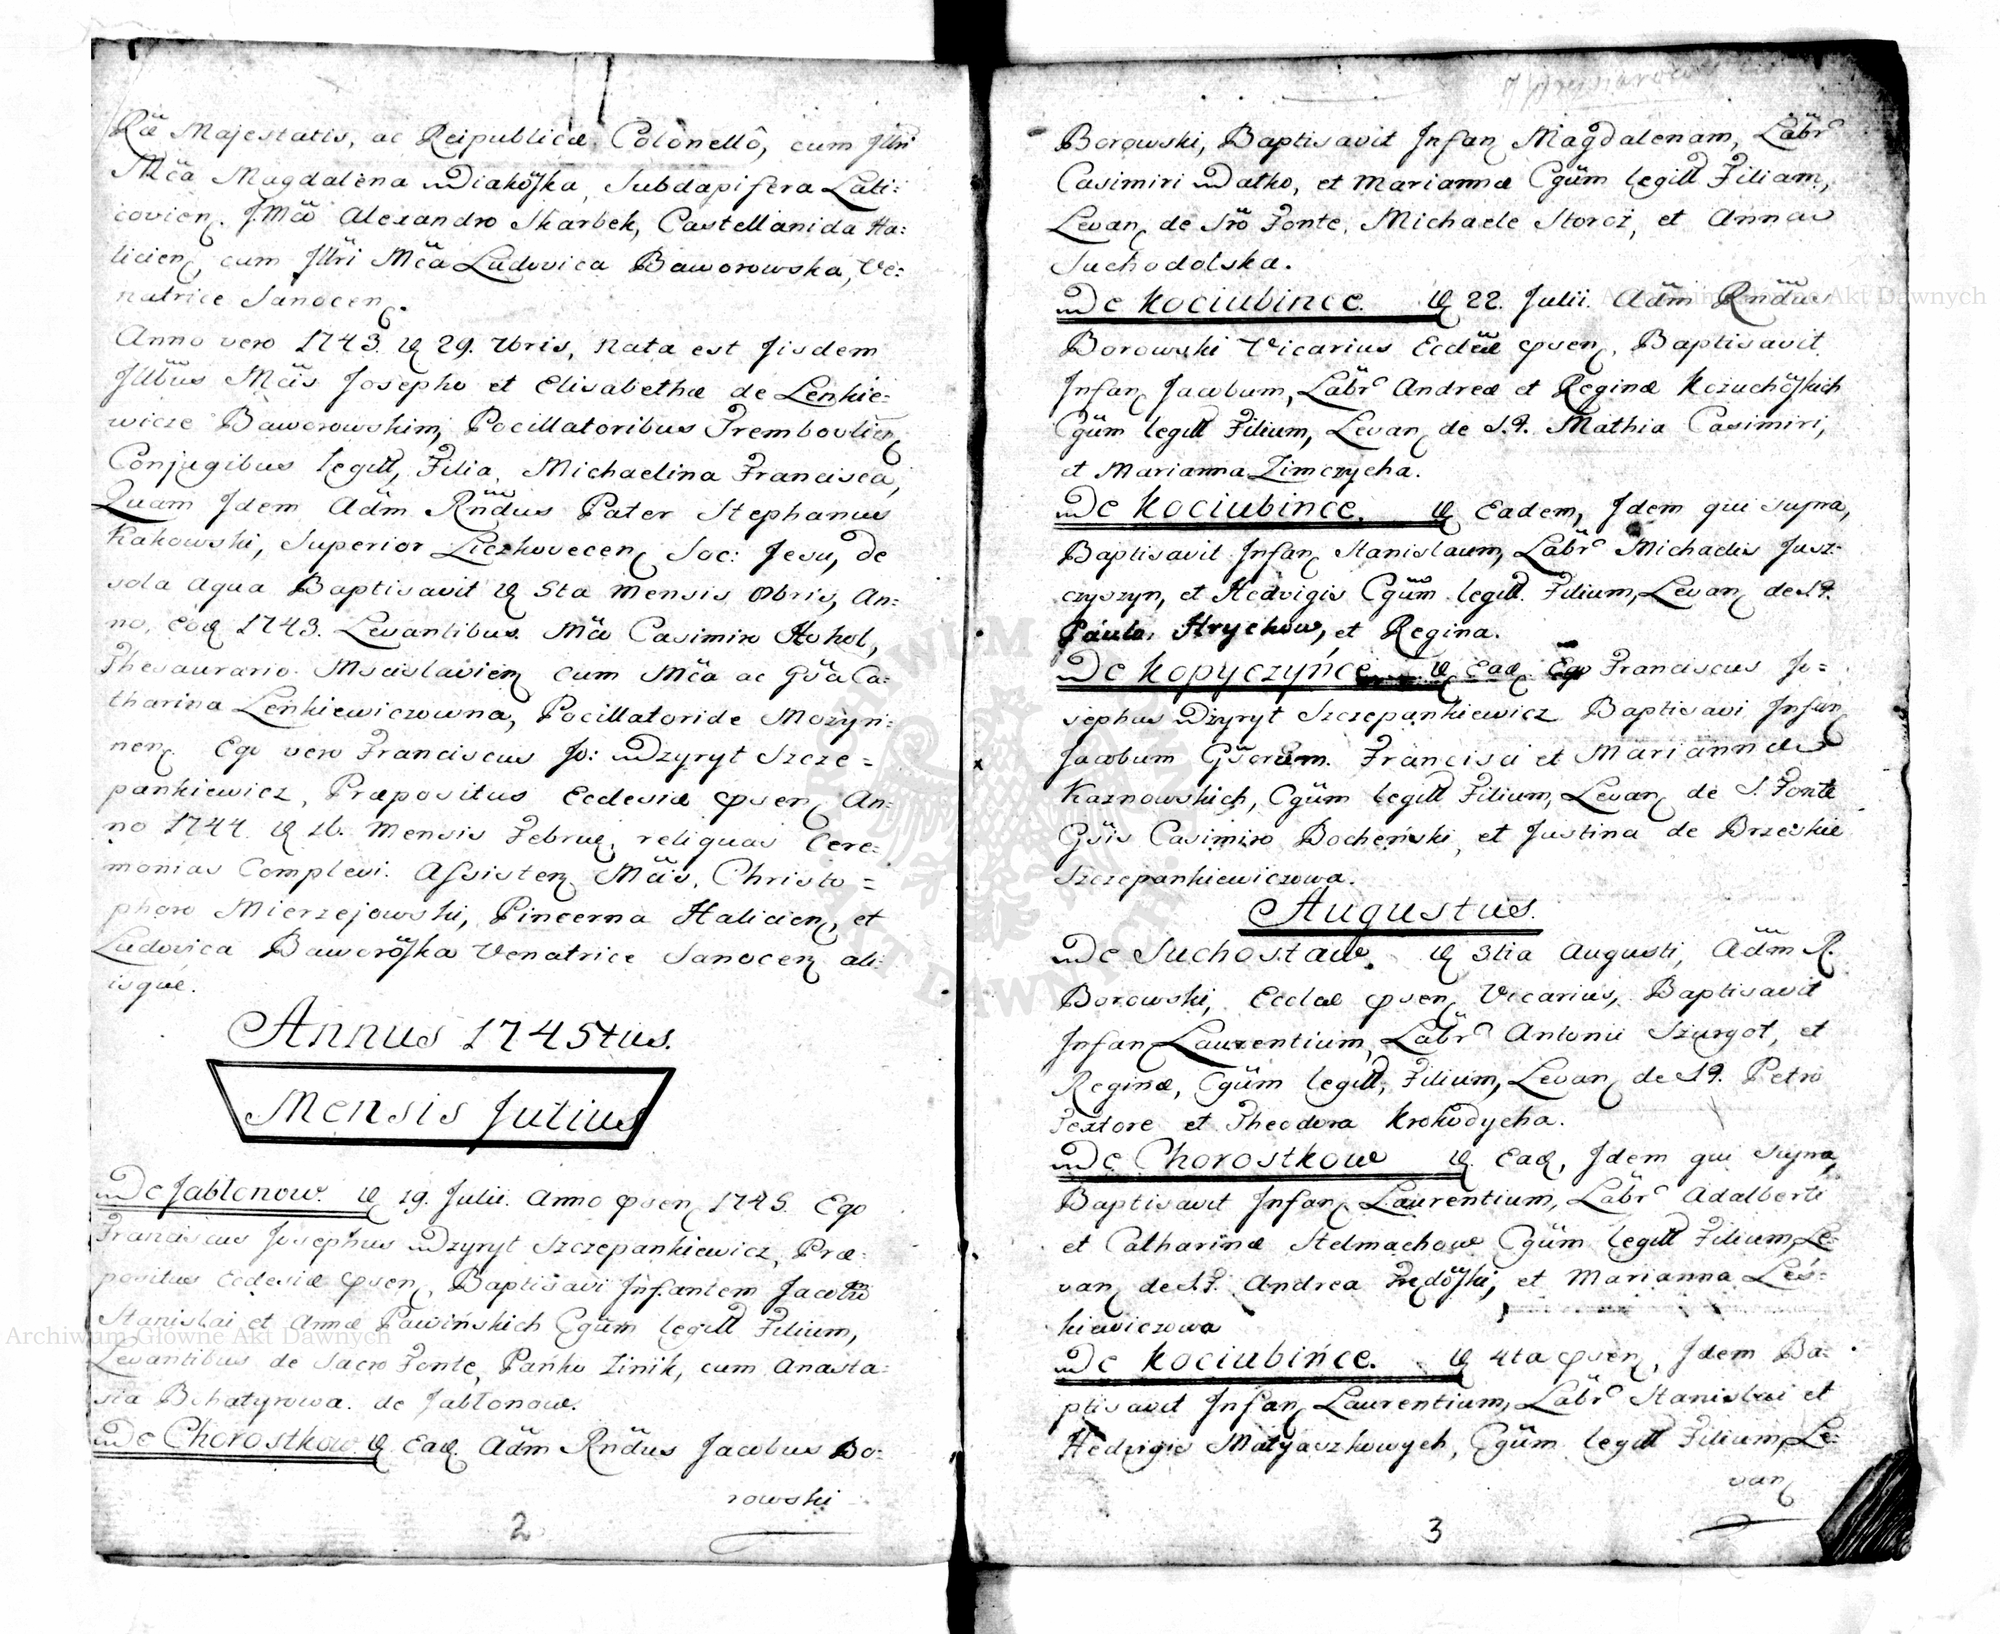 Ræ Majestatis, ac Reipublicæ Colonellô, cum Jllri
Mča Magdalena Diakõſka, Subdapifera Lati:
covien. J.Mcō Alexandro Skarbek, Castellanida Ha:
licien, cum Jllri Mča Ludovica Baworowska, Ve:
natrice Sanocen.
Anno vero 1743. D 29. 7bris, Nata est Jisdem
Jllbus Mcis Josepho et Elisabethæ de Lenkie:
wicze Baworowskim, Pocillatoribus Trembovlien
Conjugibus legitt, Filia, Michaelina Francisca,
Quam Jdem Adm Rndus Pater Stephanus
Kakowski, Superior Liczkovecen Soc: Jesu, de
sola aqua Baptisavit D 5ta Mensis 8bris, An:
no, eod 1743. Levantibus Mcō Casimiro Hohol,
Thesaurario Mscislavien cum Mča ac Gsa Ca:
tharina Lenkiewiczowna, Pocillatoride Mozyri:
nen. Ego vero Franciscus Jo: Dzyryt Szcze=
pankiewicz, Præpositus Ecclesiæ psen, An:
no 1744. D 16. Mensis Februar, reliquas Cere:
monias Complevi. Aſsisten Mcis, Christo=
phoro Mierzejowski, Pincerna Halicien, et
Ludovica Baworõſka Venatrice Sanocen ali:
isque.
Annus 1745tus.
Mensis Julius
De Jabłonow. D 19. Julii. Anno psen 1745. Ego
Franciscus Josephus Dzyryt Szczepankiewicz, Præ:
positus Ecclesiæ psen, Baptisavi Jnfantem Jacobū
Stanislai et Annæ Pawińskich Cgūm legitt Filium,
Levantibus de Sacro Fonte, Pańko Zinik, cum Anasta:
sia Bohatyrowa. de Jabłonow.
De Chorostkow. D Ead. Adm Rndus Jacobus Bo:
rowski
2
Borowski, Baptisavit Jnfan Magdalenam, Labr
Casimiri Datko, et Mariannæ Cgūm legitt Filiam,
Levan de Sro Fonte, Michaele Storoż, et Anna
Suchodolska.
De Kociubince. D 22. Julii. Adm Rndus
Borowski Vicarius Ecclæ psen, Baptisavit
Jnfan Jacobum, Labr Andreæ et Reginæ Kozuchõſkich
Cgūm legitt Filium, Levan de S.F. Mathia Casimiri,
et Marianna Zimczycha.
De Kociubince. D Eadem, Jdem qui supra,
Baptisavit Jnfan Stanislaum, Labr Michaelis Jusz:
czyszyn, et Hedvigis Cgūm legitt. Filium, Levan de S.F.
Paulo Hrychow, et Regina.
De Kopyczyńce D Ead. Ego Franciscus Jo=
sephus Dzyryt Szczepankiewicz Baptisavi Jnfan
Jacobum Gsorum Francisci et Mariannæ
Kaznowskich, Cgūm legitt Filium, Levan de S. Fonte
Gsis Casimiro Bocheński, et Justina de Brzeskie
Szczepankiewiczowa.
Augustus.
De Suchostaw. D 3tia Augusti, Adm R.
Borowski, Ecclæ psen Vicarius, Baptisavit
Jnfan Laurentium, Labr Antonii Szurgot, et
Reginæ, Cgūm legitt, Filium, Levan de S.F. Petro
Textore et Theodora Krokodycha.
De Chorostkow D. Ead, Jdem qui supra,
Baptisavit Jnfan Laurentium, Labr Adalberti
et Catharinæ Stelmachow Cgūm legitt Filium, Le:
van de S.F. Andrea Frędõſki, et Marianna Leś:
kiewiczowa
De Kociubińce. D 4ta psen, Jdem Ba:
ptisavit Jnfan Laurentium, Labr Stanislai et
Hedvigis Matyaszkowych, Cgūm legitt Filium, Le:
van
3
Archiwum Główne Akt Dawnych
Archiwum Główne Akt Dawnych